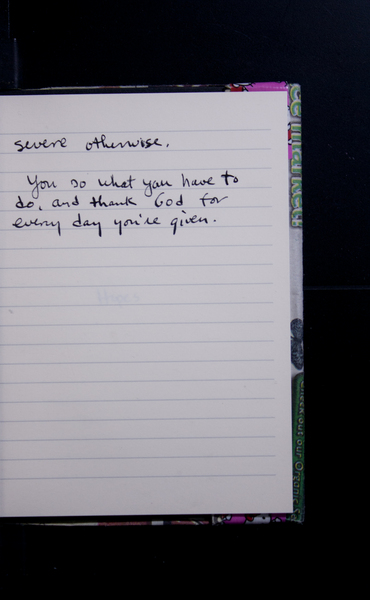 severe otherwise.
You do what you have to
do, and thank God for
every day you're given.
Check out our Organic